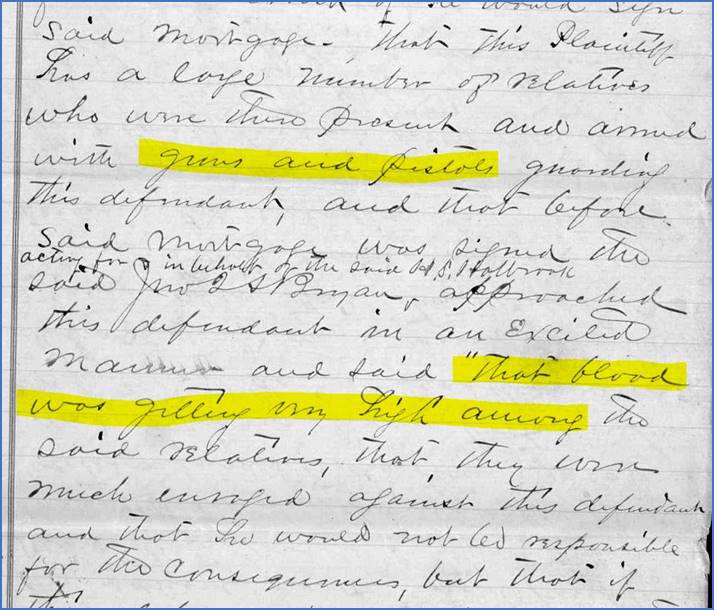 he would sign
said mortgage - that this Plaintiff
has a large number of relatives
who were there present and armed
with guns and pistols guarding
this defendant, and that before
said mortgage was signed the
acting for & in behalf of the said H S Holbrook
said Jno Bryan, approached
this defendant in an Excited
manner and said "that blood
was getting very high among the
said relatives, that they were
much enraged against this defendant
and that he would not be responsible
for the consequences, but that if